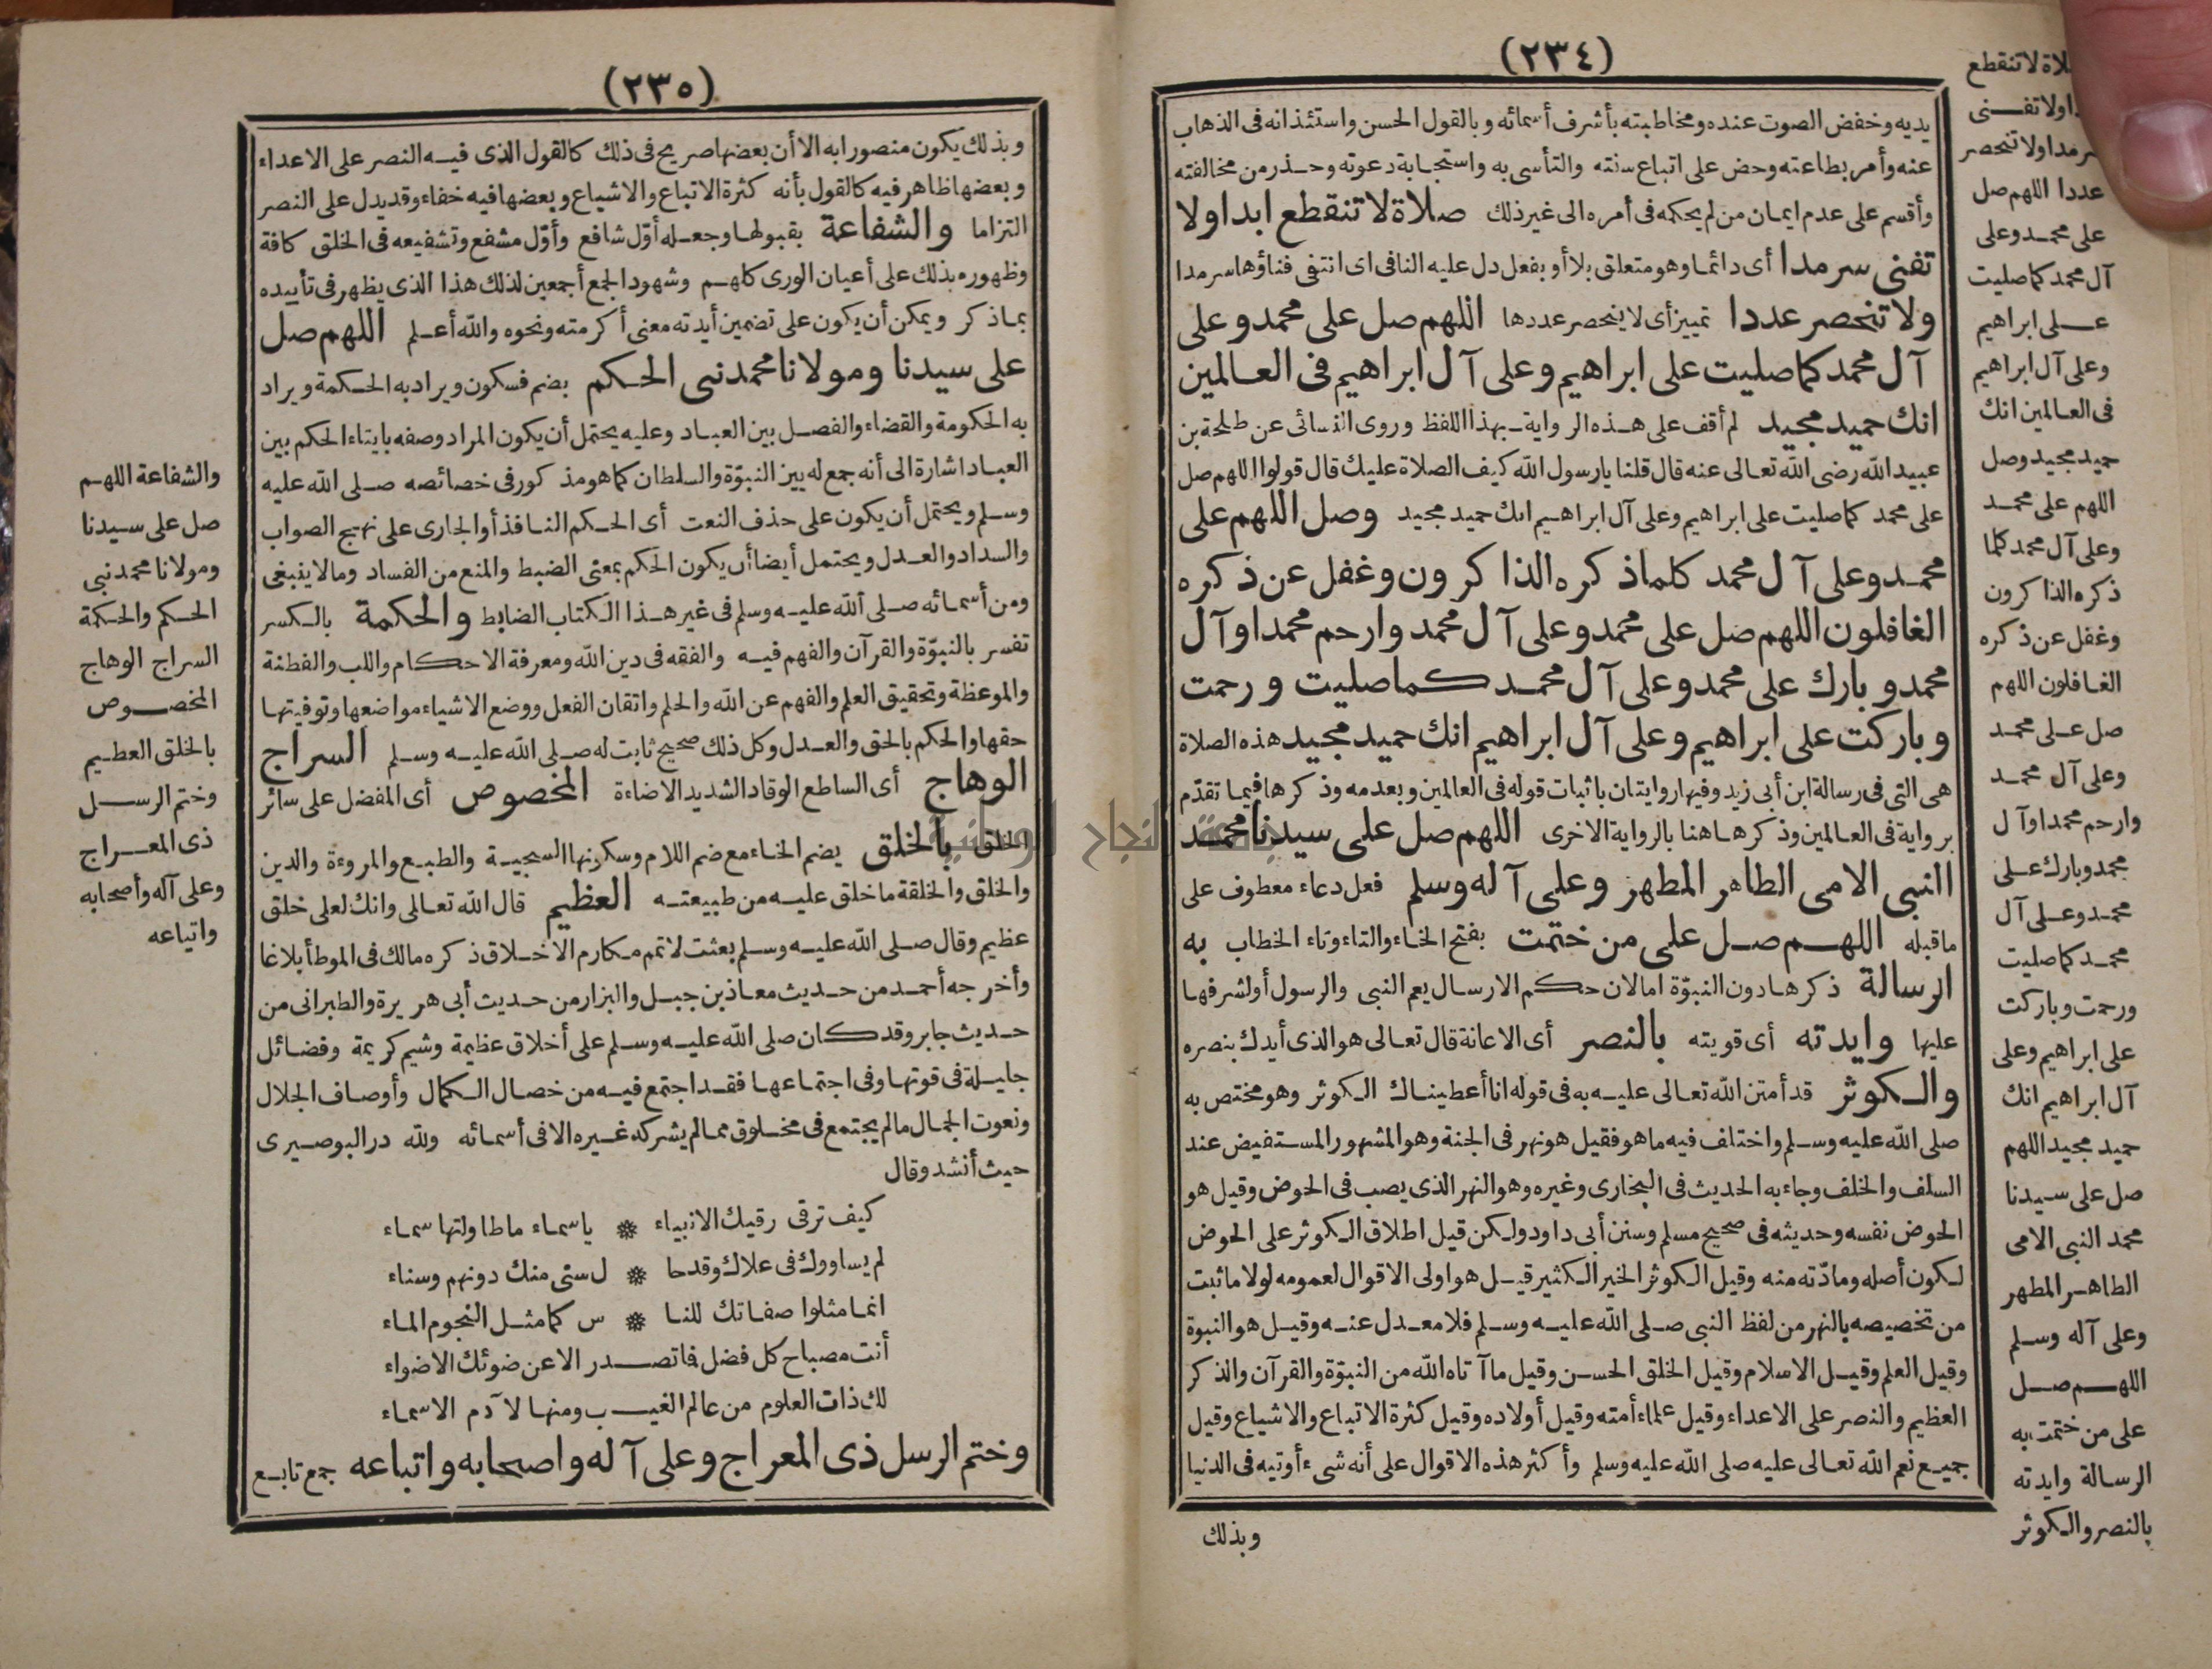 (٢٣٤)
يديه وخفض الصوت عنده ومخاطبته بأشرف أسمائه وبالقول الحسن واستئذانه فى الذهاب
عنه وأمر بطاعته وحض على اتباع سنته والتأسى به واستجابة دعوته وحذر من مخالفته
وأقسم على عدم ايمان من لم يحكمه فى أمره الى غير ذلك صلاة لا تنقطع ابدا ولا
تفنى سرمدا أى دائما وهو متعلق بلا أو بفعل دل عليه النافى اى انتفى فناؤها سرمدا
ولا تنحصر عددا تمييز أى لا ينحصر عددها اللهم صل على محمد وعلى
آل محمد كما صليت على ابراهيم وعلى آل ابراهيم فى العالمين
انك حميد مجيد لم أقف على هذه الرواية بهذا اللفظ وروى النسائى عن طلحة بن
عبيد الله رضى الله تعالى عنه قال قلنا يارسول الله كيف الصلاة عليك قال قولوا اللهم صل
على محمد كما صليت على ابراهيم وعلى آل ابراهيم انك حميد مجيد وصل اللهم على
محمد وعلى آل محمد كلما ذكره الذاكرون وغفل عن ذكره
الغافلون اللهم صل على محمد وعلى آل محمد وارحم محمدا وآل
محمد وبارك على محمد وعلى آل محمد كما صليت ورحمت
وباركت على ابراهيم وعلى آل ابراهيم انك حميد مجيد هذه الصلاة
هى التى فى رسالة ابن أبى زيد وفيها روايتان باثبات قوله فى العالمين وبعدمه وذكرها فيما تقدّم
برواية فى العالمين وذكرها هنا بالرواية الاخرى اللهم صل على سيدنا محمد
النبى الامى الطاهر المطهر وعلى آله وسلم فعل دعاء معطوف على
ما قبله اللهم صل على من ختمت بفتح الخاء والتاء وتاء الخطاب به
الرسالة ذكرها دون النبوّة امالان حكم الارسال يعم النبى والرسول أو لشرفها
عليها وايدته أى قويته بالنصر أى الاعانة قال تعالى هو الذى أيدك بنصره
والكوثر قد أمتن الله تعالى عليه به فى قوله انا أعطيناك الكوثر وهو مختص به
صلى الله عليه وسلم واختلف فيه ما هو فقيل هو نهر فى الجنة وهو المشهور المستفيض عند
السلف والخلف وجاء به الحديث فى البخارى وغيره وهو النهر الذى يصب فى الحوض وقيل هو
الحوض نفسه وحديثه فى صحيح مسلم وسنن أبى داود ولكن قيل اطلاق الكوثر على الحوض
لكون أصله ومادّته منه وقيل الكوثر الخير الكثير قيل هو اولى الاقوال لعمومه لولا ما ثبت
من تخصيصه بالنهر من لفظ النبى صلى الله عليه وسلم فلا معدل عنه وقيل هو النبوة
وقيل العلم وقيل الاسلام وقيل الخلق الحسن وقيل ما آتاه الله من النبوّة والقرآن والذكر
العظيم والنصر على الاعداء وقيل علماء أمته وقيل أولاده وقيل كثرة الاتباع والاشياع وقيل
جميع نعم الله تعالى عليه صلى الله عليه وسلم وأكثر هذه الاقوال على أنه شىء أوتيه فى الدنيا
وبذلك
لاة لا تنقطع
ولا تفنى
سرمدا ولا تنحصر
عددا اللهم صل
على محمد وعلى
آل محمد كما صليت
على ابراهيم
وعلى آل ابراهيم
فى العالمين انك
حميد مجيد وصل
اللهم على محمد
وعلى آل محمد كلما
ذكره الذاكرون
وغفل عن ذكره
الغافلون اللهم
صل على محمد
وعلى آل محمد
وارحم محمدا وآل
محمد وبارك على
محمد وعلى آل
محمد كما صليت
ورحمت وباركت
على ابراهيم وعلى
آل ابراهيم انك
حميد مجيد اللهم
صل على سيدنا
محمد النبى الامى
الطاهر المطهر
وعلى آله وسلم
اللهم صل
على من ختمت به
الرسالة وايدته
بالنصر والكوثر
(٢٣٥)
وبذلك يكون منصورا به الا أن بعضها صريح فى ذلك كالقول الذى فيه النصر على الاعداء
وبعضها ظاهر فيه كالقول بأنه كثرة الاتباع والاشياع وبعضها فيه خفاء وقد يدل على النصر
التزاما والشفاعة بقبولها وجعله أوّل شافع وأوّل مشفع وتشفيعه فى الخلق كافة
وظهوره بذلك على أعيان الورى كلهم وشهود الجمع أجمعين لذلك هذا الذى يظهر فى تأييده
بما ذكر ويمكن أن يكون على تضمين أيدته معنى أكرمته ونحوه والله أعلم اللهم صل
على سيدنا ومولانا محمد نبى الحكم بضم فسكون ويراد به الحكمة ويراد
به الحكومة والقضاء والفصل بين العباد وعليه يحتمل أن يكون المراد وصفه بايتاء الحكم بين
العباد اشارة الى أنه جمع له بين النبوّة والسلطان كما هو مذكور فى خصائصه صلى الله عليه
وسلم ويحتمل أن يكون على حذف النعت أى الحكم النافذ أو الجارى على نهج الصواب
والسداد والعدل ويحتمل أيضا أن يكون الحكم بمعنى الضبط والمنع من الفساد وما لا ينبغى
ومن أسمائه صلى الله عليه وسلم فى غير هذا الكتاب الضابط والحكمة بالكسر
تفسر بالنبوّة والقرآن والفهم فيه والفقه فى دين الله ومعرفة الاحكام واللب والفطنة
والموعظة وتحقيق العلم والفهم عن الله والحلم واتقان الفعل ووضع الاشياء مواضعها وتوفيتها
حقها والحكم بالحق والعدل وكل ذلك صحيح ثابت له صلى الله عليه وسلم السراج
الوهاج أى الساطع الوقاد الشديد الاضاءة المخصوص أى المفضل على سائر
الخلق بالخلق يضم الخاء مع ضم اللام وسكونها السجية والطبع والمروءة والدين
والخلق والخلقة ما خلق عليه من طبيعته العظيم قال الله تعالى وانك لعلى خلق
عظيم وقال صلى الله عليه وسلم بعثت لاتمم مكارم الاخلاق ذكره مالك فى الموطأ بلاغا
وأخرجه أحمد من حديث معاذ بن جبل والبزار من حديث أبى هريرة والطبرانى من
حديث جابر وقد كان صلى الله عليه وسلم على أخلاق عظيمة وشيم كريمة وفضائل
جليلة فى قوتها وفى اجتماعها فقد اجتمع فيه من خصال الكمال وأوصاف الجلال
ونعوت الجمال ما لم يجتمع فى مخلوق مما لم يشركه غيره الا فى أسمائه ولله در البوصيرى
حيث أنشد وقال
كيف ترقى رقيك الانبياء ❋ يا سماء ما طاولتها سماء
لم يساووك فى علاك وقد حا ❋ ل سنى منك دونهم وسناء
انما مثلوا صفاتك للنا ❋ س كما مثل النجوم الماء
أنت مصباح كل فضل فما تصدر الا عن ضوئك الاضواء
لك ذات العلوم من عالم الغيب ومنها لآدم الاسماء
وختم الرسل ذى المعراج وعلى آله واصحابه واتباعه جمع تابع
والشفاعة اللهم
صل على سيدنا
ومولانا محمد نبى
الحكم والحكمة
السراج الوهاج
المخصوص
بالخلق العظيم
وختم الرسل
ذى المعراج
وعلى آله وأصحابه
واتباعه